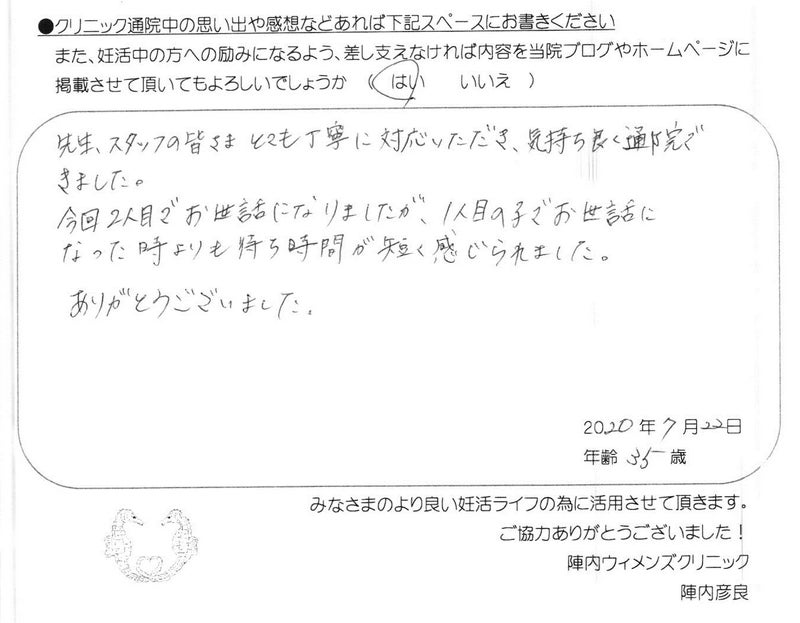 ●クリニック通院中の思い出や感想などあれば下記スペースにお書きください
また、妊活中の方への励みになるよう、差し支えなければ内容を当院ブログやホームページに
掲載させて頂いてもよろしいでしょうか （ はい　いいえ ）
先生、スタッフの皆さま とても丁寧に対応いただき、気持ち良く通院で
きました。
今回2人目でお世話になりましたが、1人目の子でお世話に
なった時よりも待ち時間が短く感じられました。
ありがとうございました。
2020年7月22日
年齢 35歳
みなさまのより良い妊活ライフの為に活用させて頂きます。
ご協力ありがとうございました！
陣内ウィメンズクリニック
陣内彦良